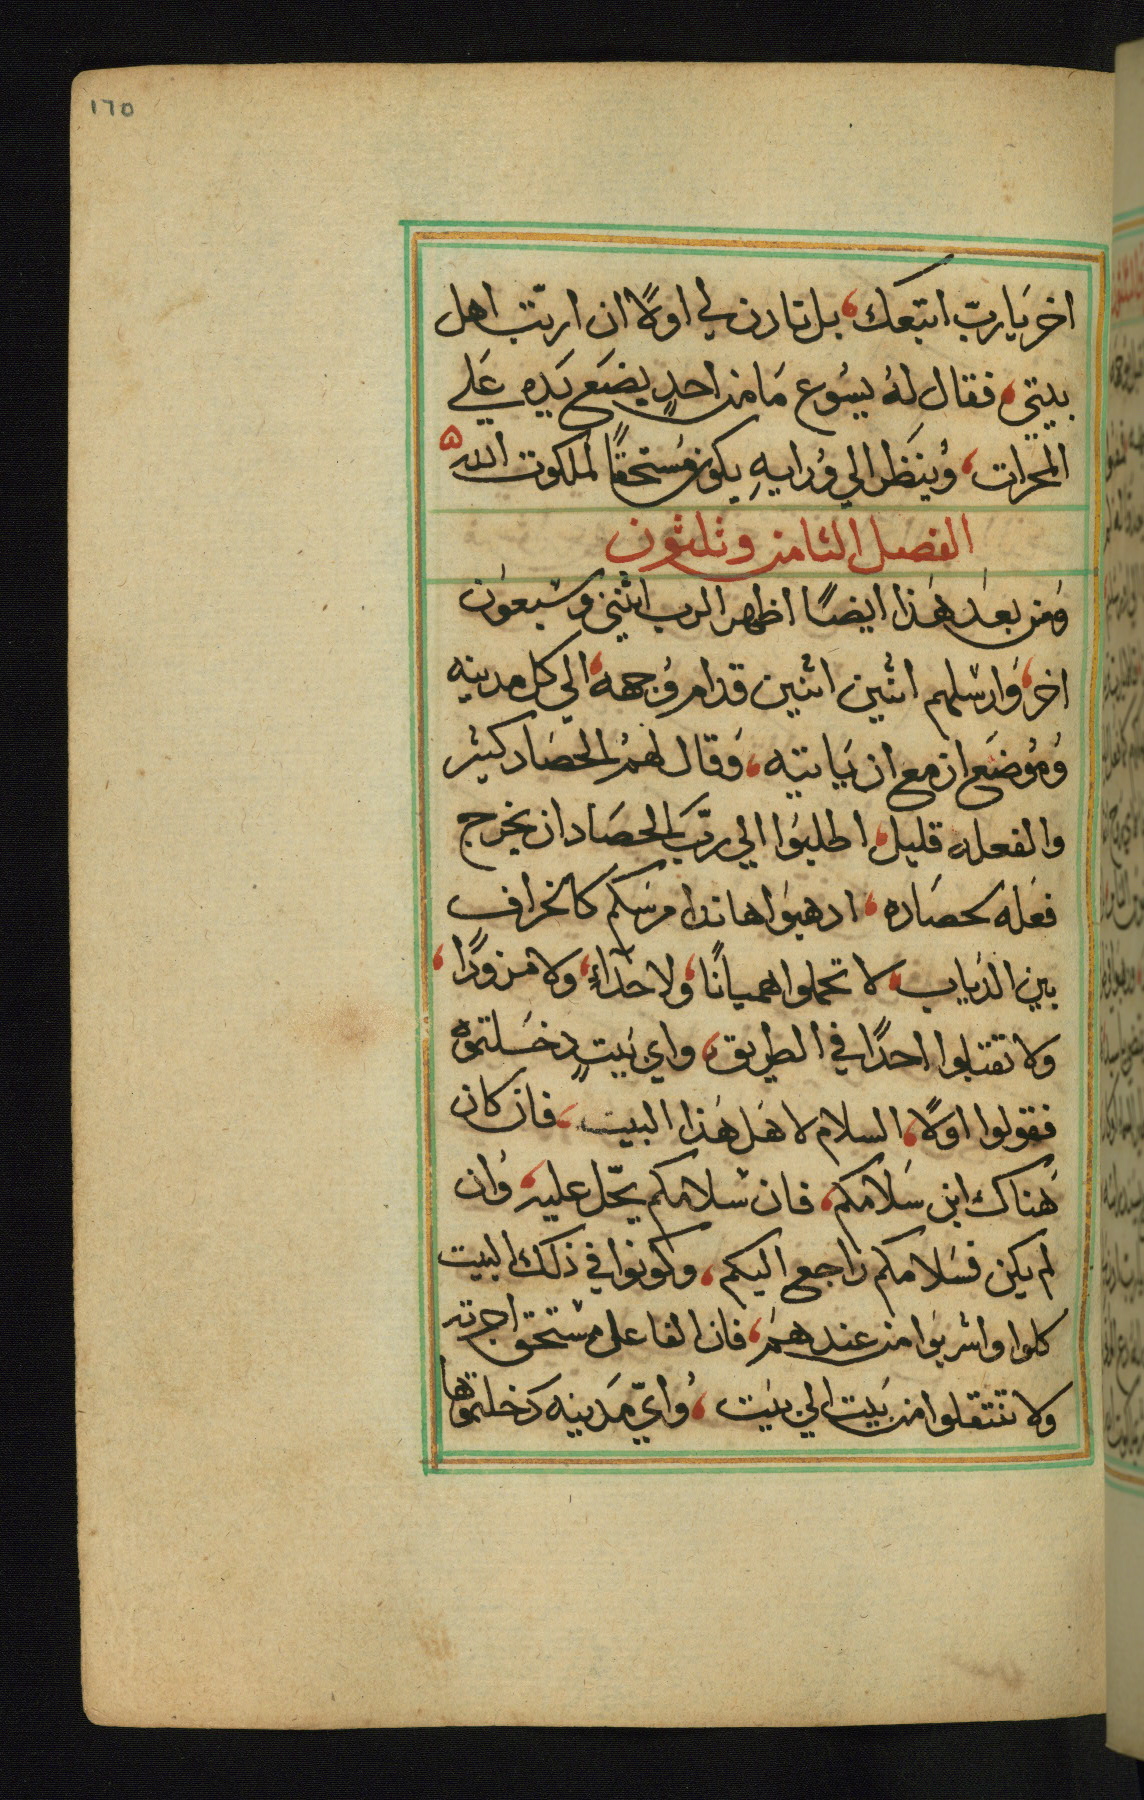 ١٦٥
اخر يَا ربّ اتبعك، بل تادن لي اولًا ان ارتّب اهل
بيتي، فقال لهُ يسُوع مَا من احدٍ يضَع يَده عَلي
المحرات، وُينَظر الي وُرايهِ يكون مُستحقًا لملكوت الله ه
الفصل الثامن وثلثون
وَمن بعدَ هَذا ايضًا اظهر الرب اثنين وسَبعوَن
اخر، وَارسَلهم اثنين اثنين قدام وُجهه، الي كل مدينه
وُموُضَع ازمع ان يَاتيه، وَقال لهمُ الحصَاد كثير
والفعله قليل، اطلبوَا الي ربّ الحصَاد ان يخرج
فعَله لحصَاده، ادهبوَا هاندا مرسَلكم كالخراف
بين الديَاب، لا تحملوا هميانًا، ولا حذاءً، ولا مزودًا،
ولا تقتبلوا احدًا في الطريق، واي بَيتٍ دخَلتموه
فقولوا اولًا، السلام لاهَل هَذا البيت، فان كان
هَناك ابن سَلامكم، فان سَلامكم يحّل عليه، وُان
لم يكن فسَلامكم راجع اليكم، وكونوا في ذلك البيت
كلوا واشربوَا من عندهمَ، فان الفاعل مستحق اجرته
ولا تنتقلوا من بَيت الي بيَت، وُايّ مَدينه دَخلتموها